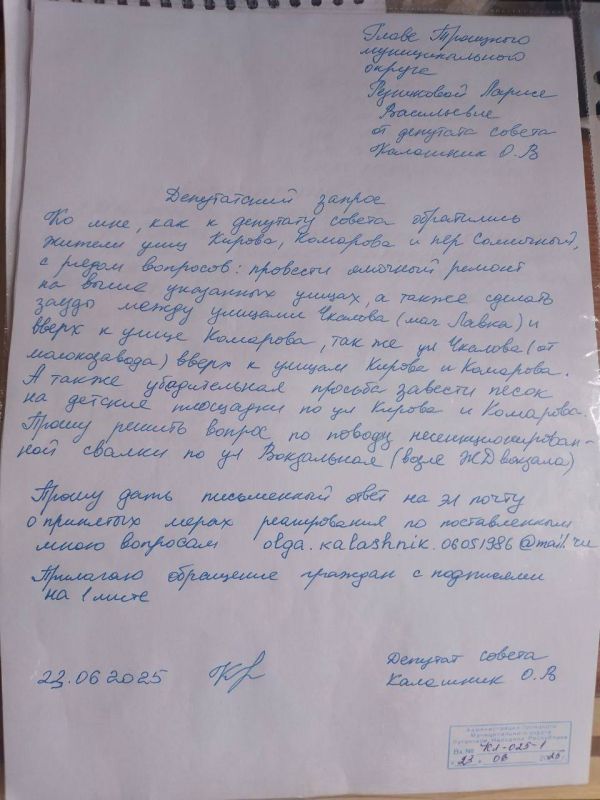 Главе Троицкого
муниципального
округа
Резниковой Ларисе
Васильевне
от депутата совета
Калашник О.В
Депутатский запрос
Ко мне, как к депутату совета обратились
жители улиц Кирова, Комарова и пер Солнечный,
с рядом вопросов: провести ямочный ремонт
на выше указанных улицах, а также сделать
между улицами Чкалова (маг Лавка) и
вверх к улице Комарова, так же ул Чкалова (от
молокозавода) вверх к улицам Кирова и Комарова.
А также убедительная просьба завести песок
на детские площадки по ул Кирова и Комарова.
Прошу решить вопрос по поводу несанкционирован-
ной свалки по ул Вокзальная (возле ЖД вокзала)
Прошу дать письменный ответ на эл почту
о принятых мерах реагирования по поставленным
мною вопросам olga.kalashnik.06051986@mail.ru
Прилагаю обращение граждан с подписями
на 1 листе
23.06 2025
Депутат совета
Калашник О.В
Муниципального округа
Луганской Народной Республики
Вх № КЛ-025-1
23 06 2025